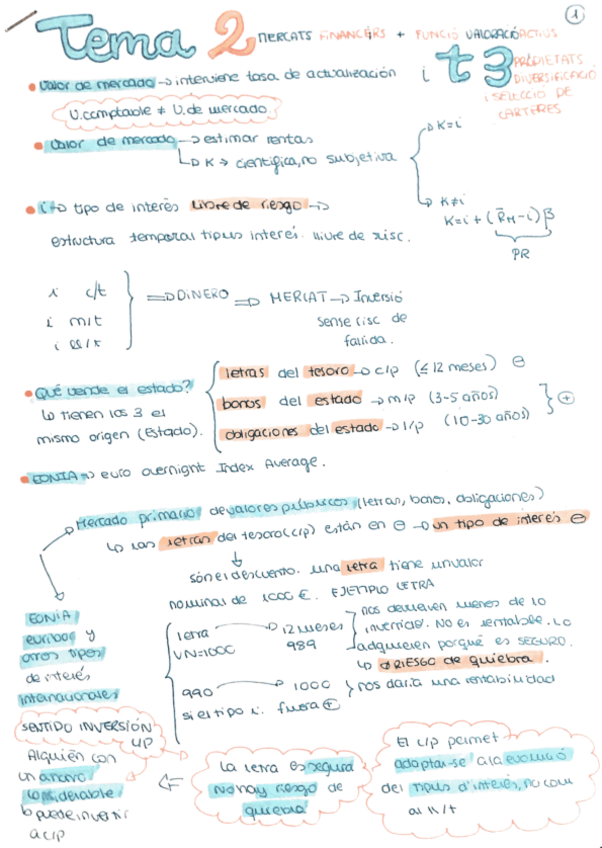 1
Tema 2 MERCATS FINANCERS + FUNCIÓ VALORACIÓ ACTIUS
i t3 PROPIETATS
DIVERSIFICACIÓ
I SELECCIÓ DE
CARTERES
• Valor de mercado → interviene tasa de actualización
V. comptable ≠ V. de mercado.
• Valor de mercado → estimar rentas
↳ K → científica, no subjetiva
→ K=i
→ K≠i
K=i+(R̄M-i)β
PR
• i → tipo de interés libre de riesgo →
estructura temporal tipus interés. lliure de risc.
i c/t
i m/t
i ll/t
⇒ DINERO ⇒ MERCAT → Inversió
sense risc de
fallida.
• Qué vende el estado?
↳ tienen los 3 el
mismo origen (Estado).
letras del tesoro → c/p (≤ 12 meses) ⊖
bonos del estado → m/p (3-5 años)
obligaciones del estado → l/p (10-30 años)
⊕
• EONIA → euro overnight Index Average.
→ Mercado primario de valores públicos (letras, bonos, obligaciones)
↳ Las letras del tesoro (c/p) están en ⊖ → un tipo de interés ⊖
són el descuento. una letra tiene un valor
nominal de 1000 €. EJEMPLO LETRA
EONIA
euribor y
otros tipos
de interés
internacionales
letra → 12 meses
VN=1000 989
nos devuelven menos de lo
invertido. No es rentable. Lo
adquieren porqué es SEGURO.
↳ Ø RIESGO de quiebra.
990 → 1000
si el tipo i. fuera ⊕
nos daría una rentabilidad
SENTIDO INVERSIÓN
c/p
Alguién con
un ahorro
considerable
↳ puede invertir
a c/p
⇐
La letra es segura
No hay riesgo de
quiebra
El c/p permet
adaptar-se a la evolució
del tipus d'interés, no com
al ll/t